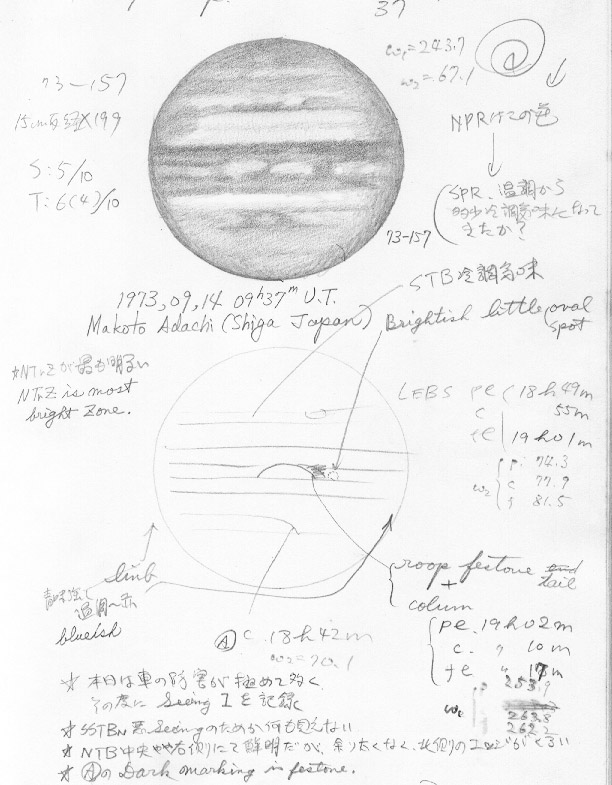 37
ω1=243.7
ω2=67.1
73-157
15cm反経X199
S:5/10
T:6(4)/10
NPRはこの色
SPR、温調から
冷調気味になって
きたか?
73-157
1973,09,14 09h37m U.T.
Makoto Adachi (Shiga Japan)
STB冷調気味
Brightish little oval
spot
*NTrZが最も明るい
NTrZ is most
bright zone.
LEBS pe 18h49m
c 55m
fe 19h01m
ω2 p. 74.3
c 77.9
f 81.5
limb
青味強く
温調〜赤
blueish
roop festone tail
+
colum
pe. 19h02m
c. 〃 10m
fe 〃 17m
253.9
263.8
262.2
Ⓐ c. 18h42m
ω2=70.1
☆ 本日は車の妨害が極めて多く
その度に Seeing 1を記録
☆ SSTBN 悪Seeingのためか何も見えない
☆ NTB中央やや右側にて鮮明だが、余り太くなく、北側のエッジがくろい
☆ ⒶのDark marking is festone.